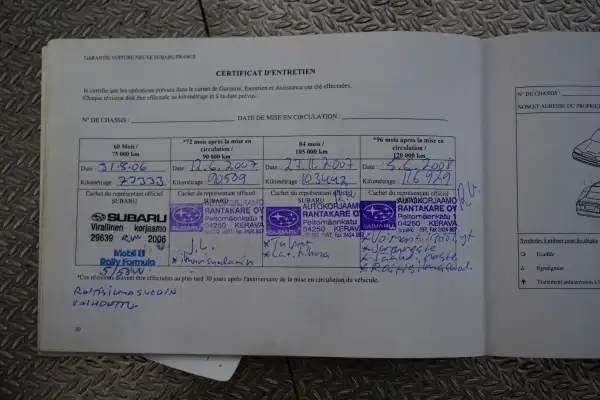 GARANTIE VOITURE NEUVE SUBARU FRANCE
CERTIFICAT D'ENTRETIEN
Je certifie que les opérations prévues dans le carnet de Garantie, Entretien et Assistance ont été effectuées.
Chaque révision doit être effectuée au kilométrage et à la date prévus.
N° DE CHASSIS : DATE DE MISE EN CIRCULATION :
60 Mois / 75 000 km
*72 mois après la mise en circulation / 90 000 km
84 mois / 105 000 km
*96 mois après la mise en circulation / 120 000 km
Date : 31.8.06
Date : 12.6.2007
Date : 27.11.2007
Date : 5.6.2008
Kilométrage 77333
Kilométrage 90509
Kilométrage 103442
Kilométrage 116929
Cachet du représentant officiel SUBARU
Cachet du représentant officiel SUBARU
Cachet du représentant officiel SUBARU
Cachet du représentant officiel
SUBARU
Virallinen korjaamo
29639 2006
Mobil 1
Rally Formula
5/50W
SUBARU
SUBARU
AUTOKORJAAMO
RANTAKARE OY
Peltomäenkatu 1
04250 KERAVA
SUBARU
AUTOKORJAAMO
RANTAKARE OY
Peltomäenkatu 1
04250 KERAVA
*Ces révisions doivent être effectuées au plus tard 30 jours après l'anniversaire de la mise en circulation du véhicule.
RAITISILMASUODIN
VAIHDETTU
N° DE CHASSIS :
NOM ET ADRESSE DU PROPRIE
Symboles à utiliser pour les dégâts
Ecaillée
A Egratignure
Traitement anticorrosion à